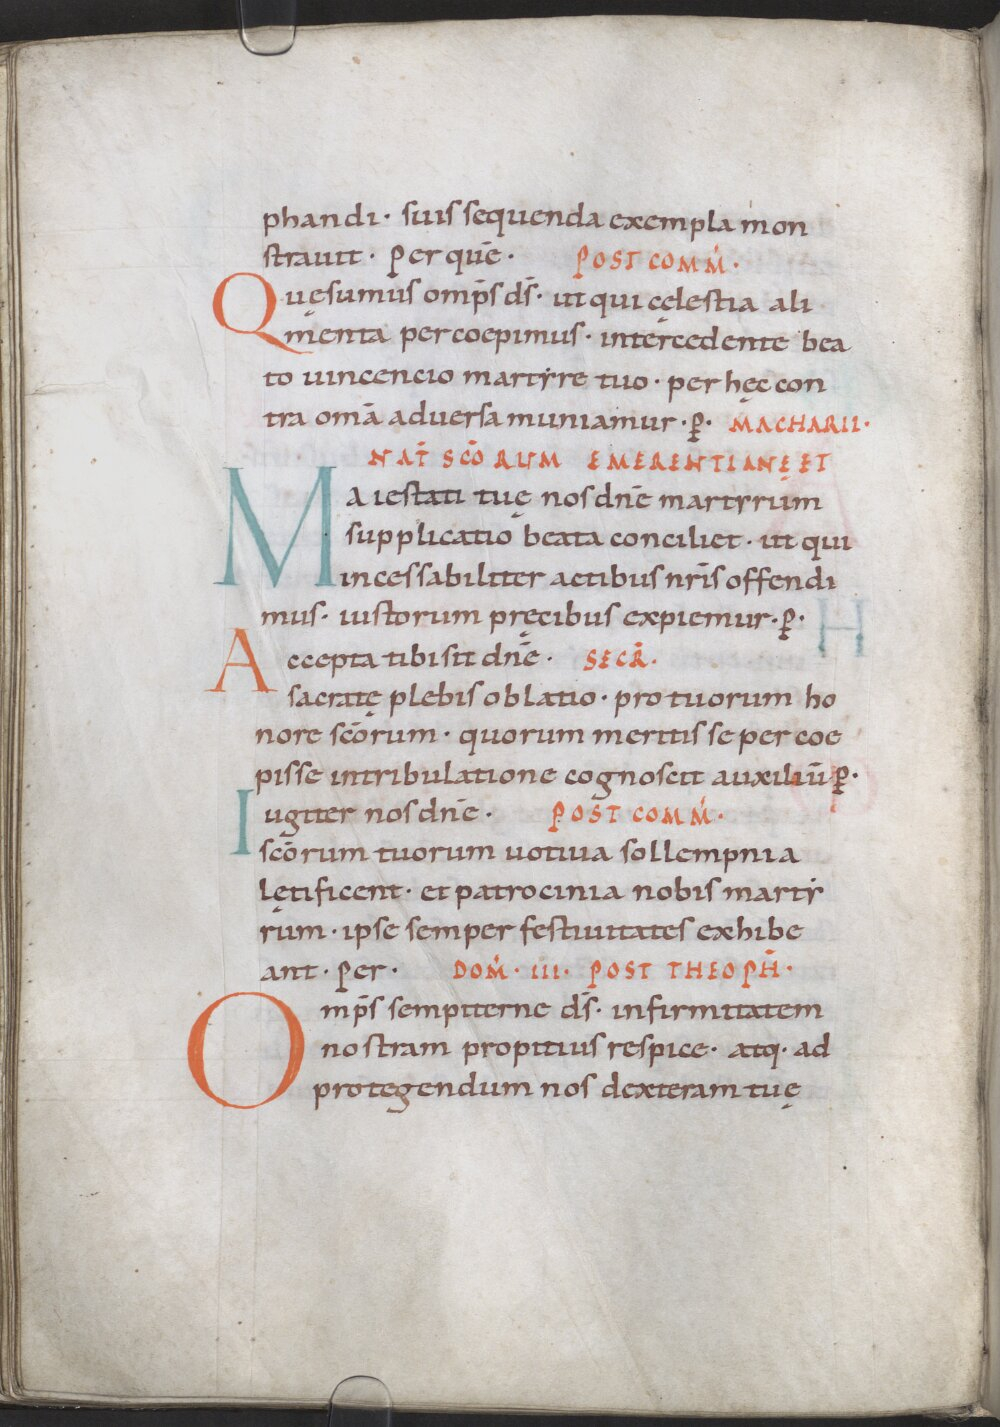 phandi· suis sequenda exempla mon
strauit· Per quē· POST COMḾ·
Quęsumus omp̄s ds̄· ut qui cęlestia ali
menta percoepimus· intercedente bea
to uincencio martyre tuo· per hęc con
tra omā aduersa muniamur·p̱· MACHARII·
NAT̄ SCŌRUM EMERENTIANĘ ET
Maiestati tuę nos dnē martyrum
supplicatio beata conciliet· ut qui
incessabiliter actibus nrīs offendi
mus· iustorum pręcibus expiemur·p̱·
Accepta tibi sit dnē· SECR̄·
sacratę plebis oblatio· pro tuorum ho
nore scōrum· quorum meritis se percoe
pisse in tribulatione cognoscit auxiliū p̱·
Iugiter nos dnē· POST COMḾ·
scōrum tuorum uotiua sollempnia
lętificent· et patrocinia nobis marty
rum· ipse semper festiuitates exhibe
ant· Per· DOḾ· III· POST THEOPH̄·
Omp̄s sempiterne ds̄· infirmitatem
nostram propitius respice· atq· ad
protegendum nos dexteram tuę